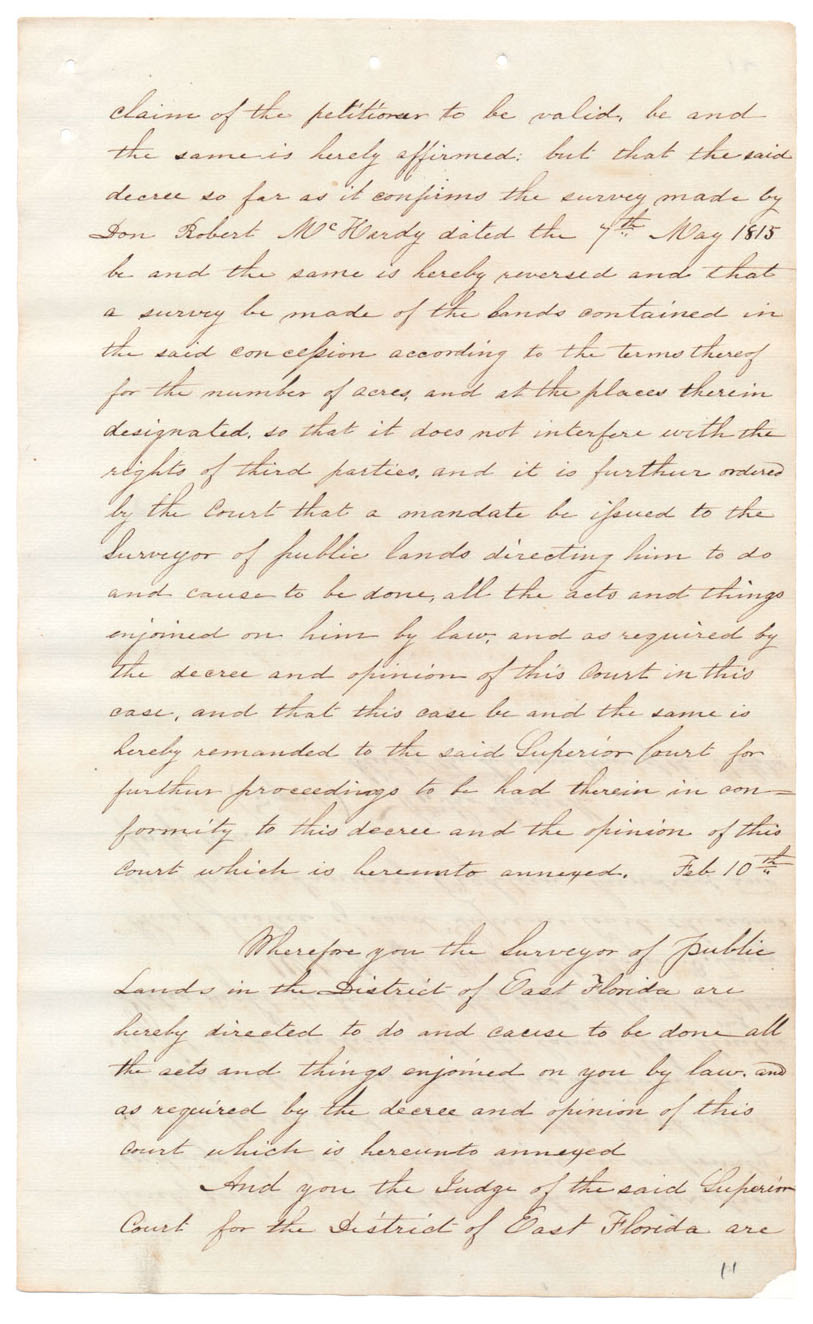 claim of the petitioner to be valid, be and
the same is hereby affirmed: but that the said
decree so far as it confirms the survey made by
Don Robert McHardy dated the 7th May 1815
be and the same is hereby reversed and that
a survey be made of the lands contained in
the said concession according to the terms thereof
for the number of acres, and at the places therein
designated, so that it does not interfere with the
rights of third parties, and it is further ordered
by the Court that a mandate be issued to the
Surveyor of public lands directing him to do
and cause to be done, all the acts and things
enjoined on him by law, and as required by
the decree and opinion of this Court in this
case, and that this case be and the same is
hereby remanded to the said Superior Court for
further proceedings to be had therein in con=
formity to this decree and the opinion of this
Court which is hereunto annexed. Feb 10th
Wherefore you the Surveyor of public
Lands in the District of East Florida are
hereby directed to do and cause to be done all
the acts and things enjoined on you by law, and
as required by the decree and opinion of this
Court which is hereunto annexed
And you the Judge of the said Superior
Court for the District of East Florida are
11